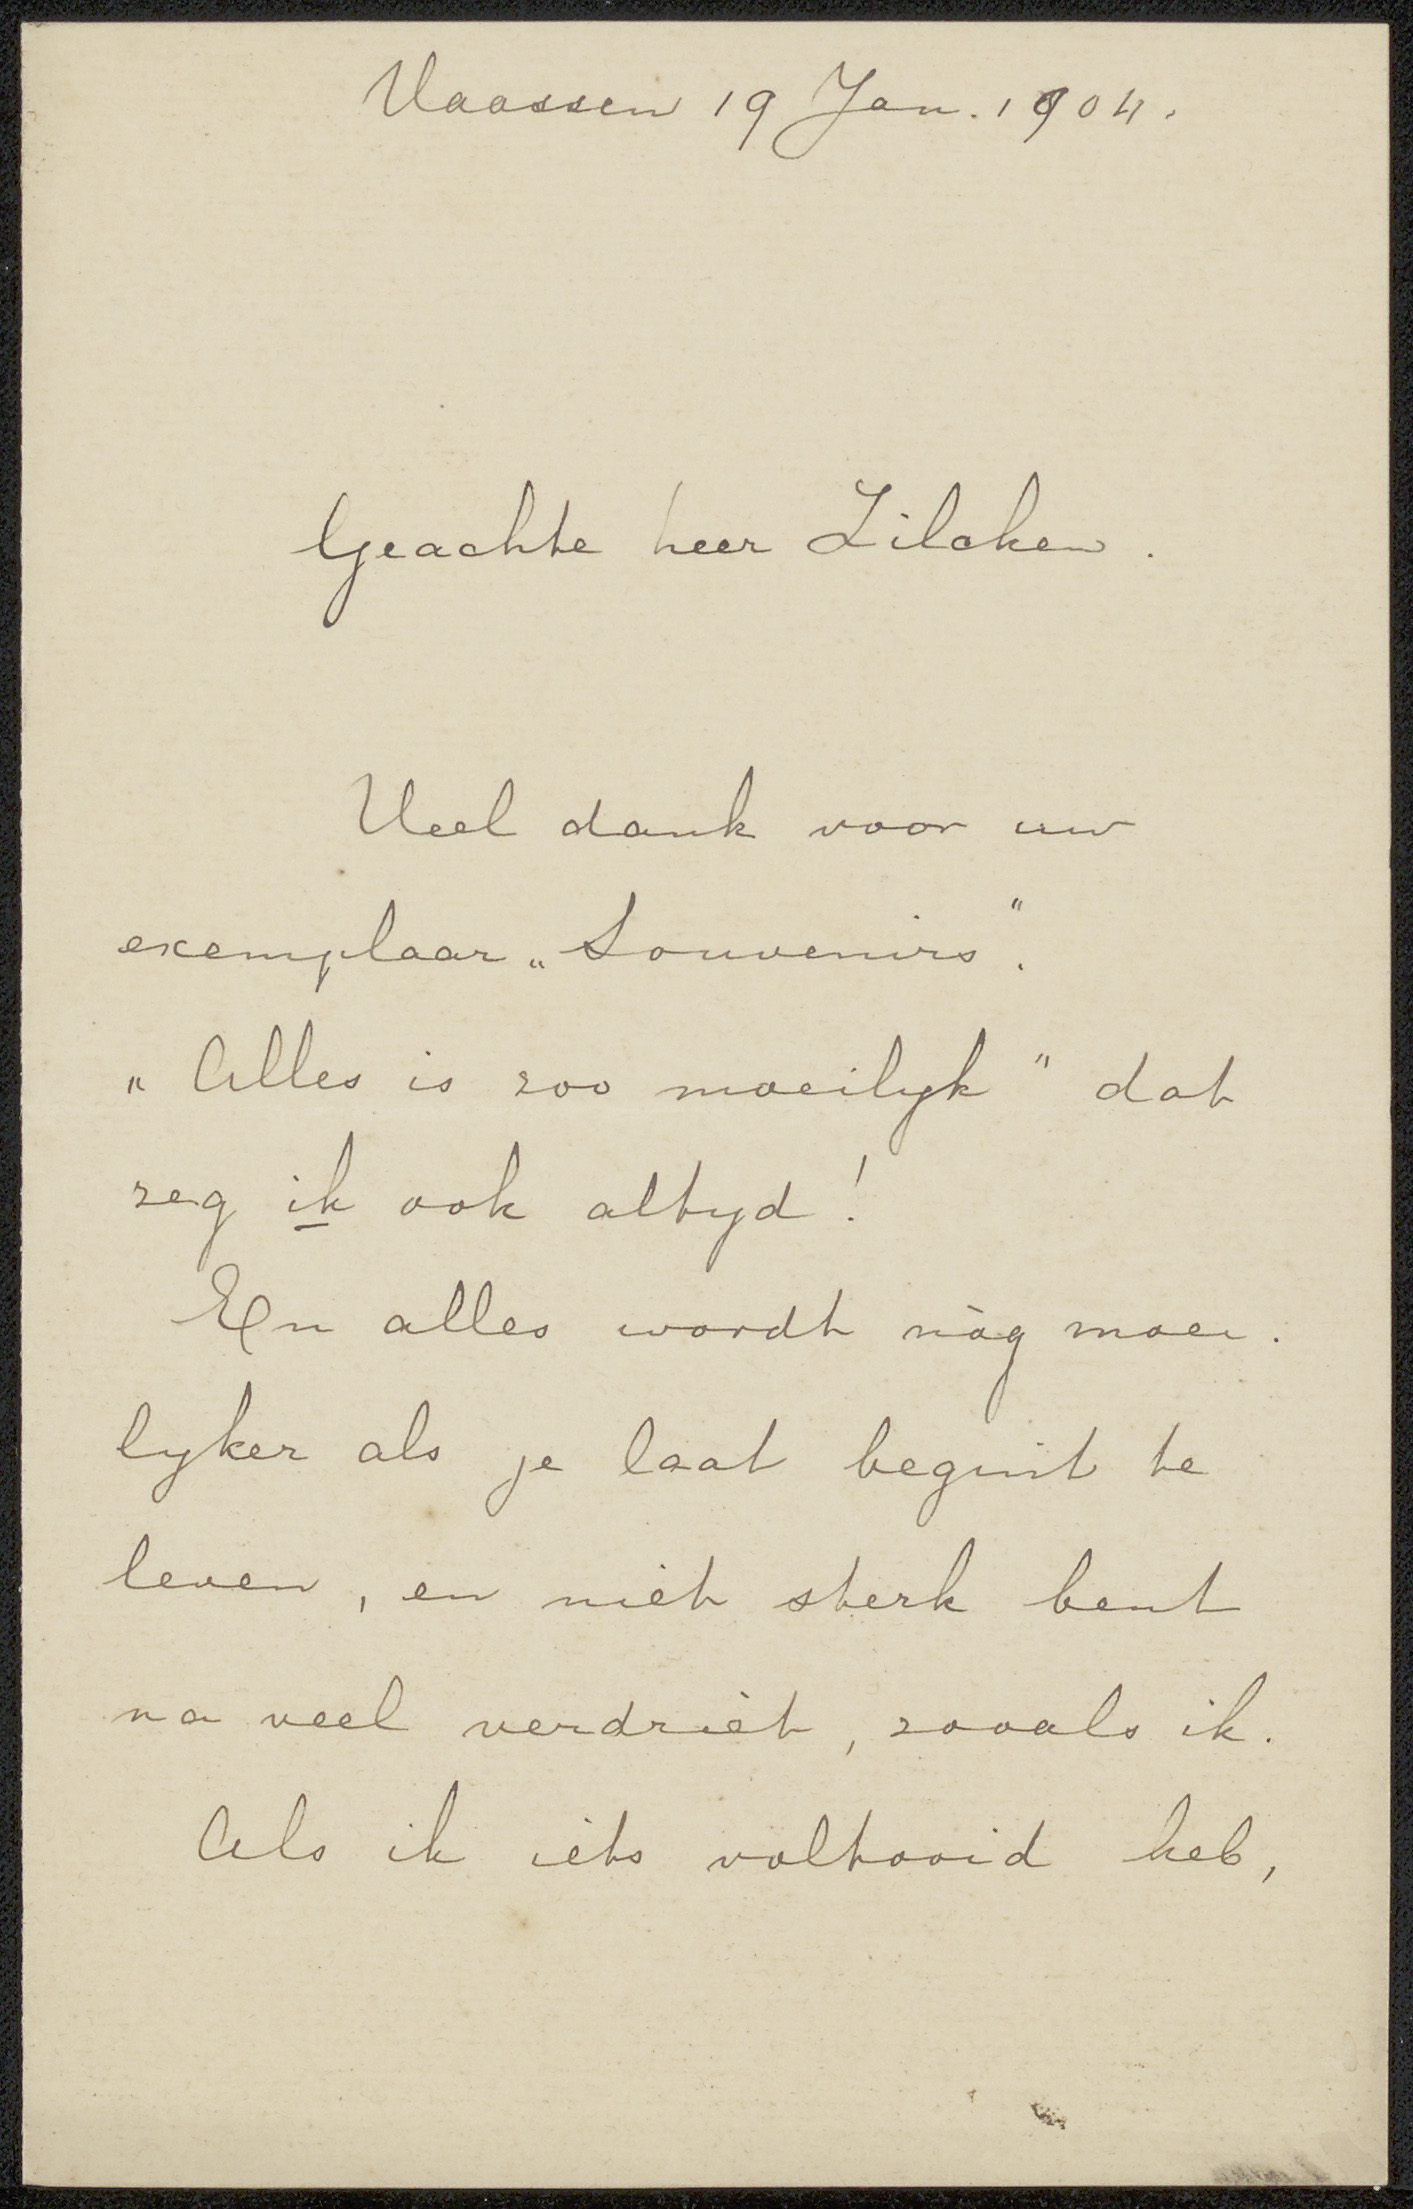 Vaassen 19 Jan. 1904.
Geachte heer Zilcken.
Veel dank voor uw
exemplaar „Souvenirs".
„Alles is zoo moeilyk" dat
zeg ik ook altyd!
En alles wordt nòg moei-
lyker als je laat begint te
leven, en niet sterk bent
na veel verdriet, zooals ik.
Als ik iets voltooid heb,